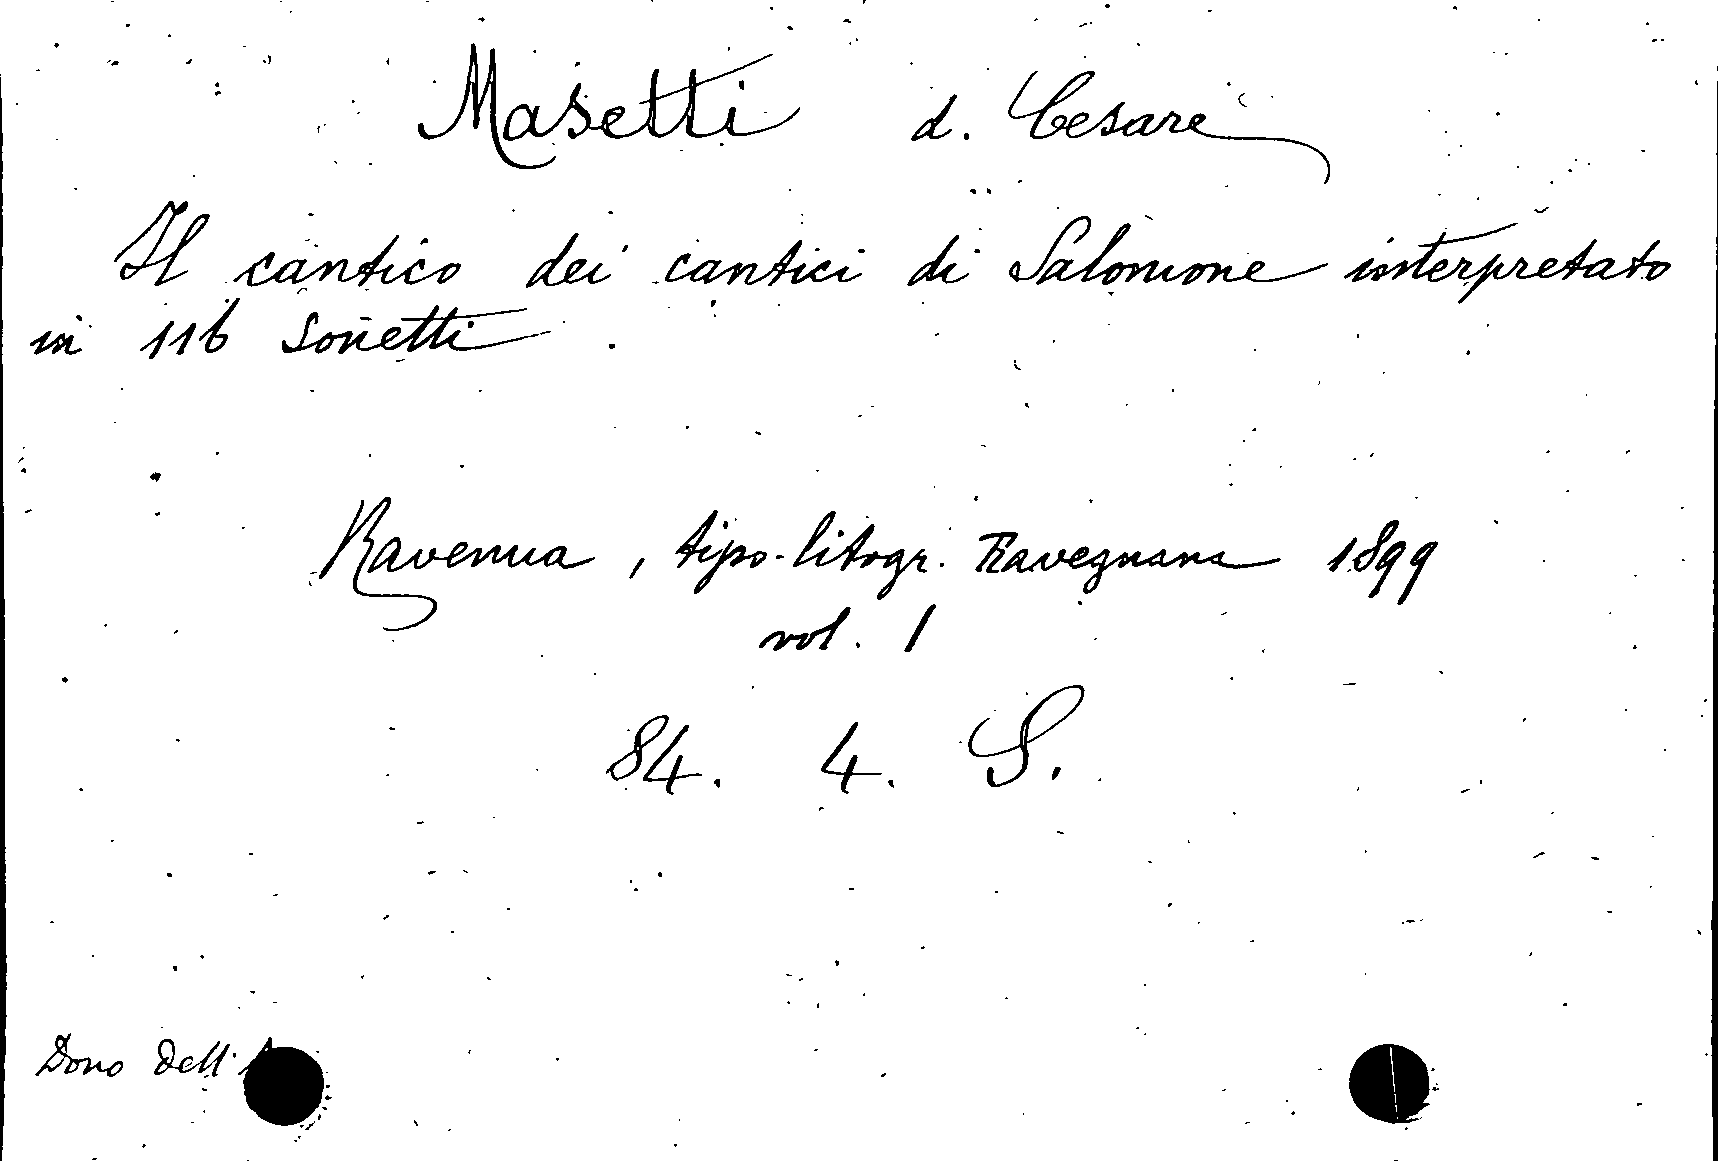 Masetti d. Cesare
Il cantico dei cantici di Salomone interpretato
in 116 sonetti .
Ravenna , tipo-litogr. Ravegnana 1899
vol. 1
84. 4. S.
Dono dell'